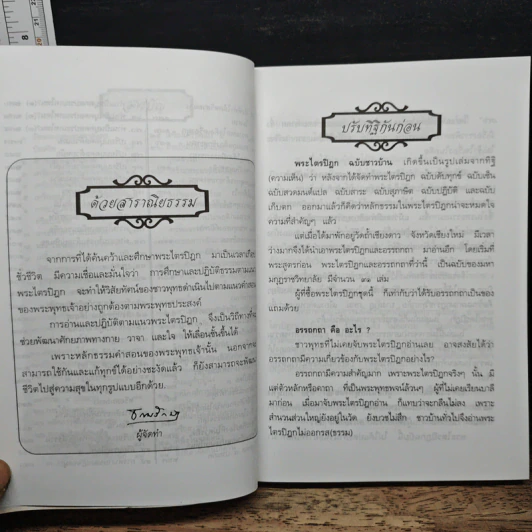 ด้วยสาราณียธรรม
จากการที่ได้ค้นคว้าและศึกษาพระไตรปิฎก มาเป็นเวลาเกือบ
ชั่วชีวิต มีความเชื่อและมั่นใจว่า การศึกษาและปฏิบัติธรรมตามแนว
พระไตรปิฎก จะทำให้วิสัยทัศน์ของชาวพุทธดำเนินไปตามแนวคำสอน
ของพระพุทธเจ้าอย่างถูกต้องตามพระพุทธประสงค์
การอ่านและปฏิบัติตามแนวพระไตรปิฎก จึงเป็นวิธีทางที่จะ
ช่วยพัฒนาศักยภาพทางกาย วาจา และใจ ให้เลื่อนชั้นขึ้นได้
เพราะหลักธรรมคำสอนของพระพุทธเจ้านั้น นอกจาก
สามารถใช้กันและแก้ทุกข์ได้อย่างชะงัดแล้ว ก็ยังสามารถจะพัฒนา
ชีวิตไปสู่ความสุขในทุกรูปแบบอีกด้วย.
ผู้จัดทำ
ปรับทิฐิกันก่อน
พระไตรปิฎก ฉบับชาวบ้าน เกิดขึ้นเป็นรูปเล่มจากทิฐิ
(ความเห็น) ว่า หลังจากได้จัดทำพระไตรปิฎก ฉบับดับทุกข์ ฉบับเซ็น
ฉบับสวดมนต์แปล ฉบับสาระ ฉบับสุภาษิต ฉบับปฏิบัติ และฉบับ
เก็บตก ออกมาแล้วก็คิดว่าหลักธรรมในพระไตรปิฎกน่าจะหมดใจ
ความที่สำคัญๆ แล้ว
แต่เมื่อได้มาพักอยู่วัดถ้ำเชียงดาว จังหวัดเชียงใหม่ มีเวลา
ว่างมากจึงได้นำเอาพระไตรปิฎกและอรรถกถา มาอ่านอีก โดยเริ่มที่
พระสูตรก่อน พระไตรปิฎกและอรรถกถาที่ว่านี้ เป็นฉบับของมหา
มกุฏราชวิทยาลัย มีจำนวน ๙๑ เล่ม
ผู้ที่ซื้อพระไตรปิฎกชุดนี้ ก็เท่ากับว่าได้รับอรรถกถาเป็นของ
แถมด้วย
อรรถกถา คือ อะไร ?
ชาวพุทธที่ไม่เคยจับพระไตรปิฎกอ่านเลย อาจสงสัยได้ว่า
อรรถกถามีความเกี่ยวข้องกับพระไตรปิฎกอย่างไร?
อรรถกถามีความสำคัญมาก เพราะพระไตรปิฎกจริงๆ นั้น มี
แต่ตัวหลักหรือคาถา ที่เป็นพระพุทธพจน์ล้วนๆ ผู้ที่ไม่เคยเรียนบาลี
มาก่อน เมื่อมาจับพระไตรปิฎกอ่าน ก็แทบว่าจะกลืนไม่ลง เพราะ
สำนวนส่วนใหญ่ยังอยู่ในวัด ยังบวชไม่สึก ชาวบ้านทั่วไปจึงอ่านพระ
ไตรปิฎกไม่ออกรส(ธรรม)